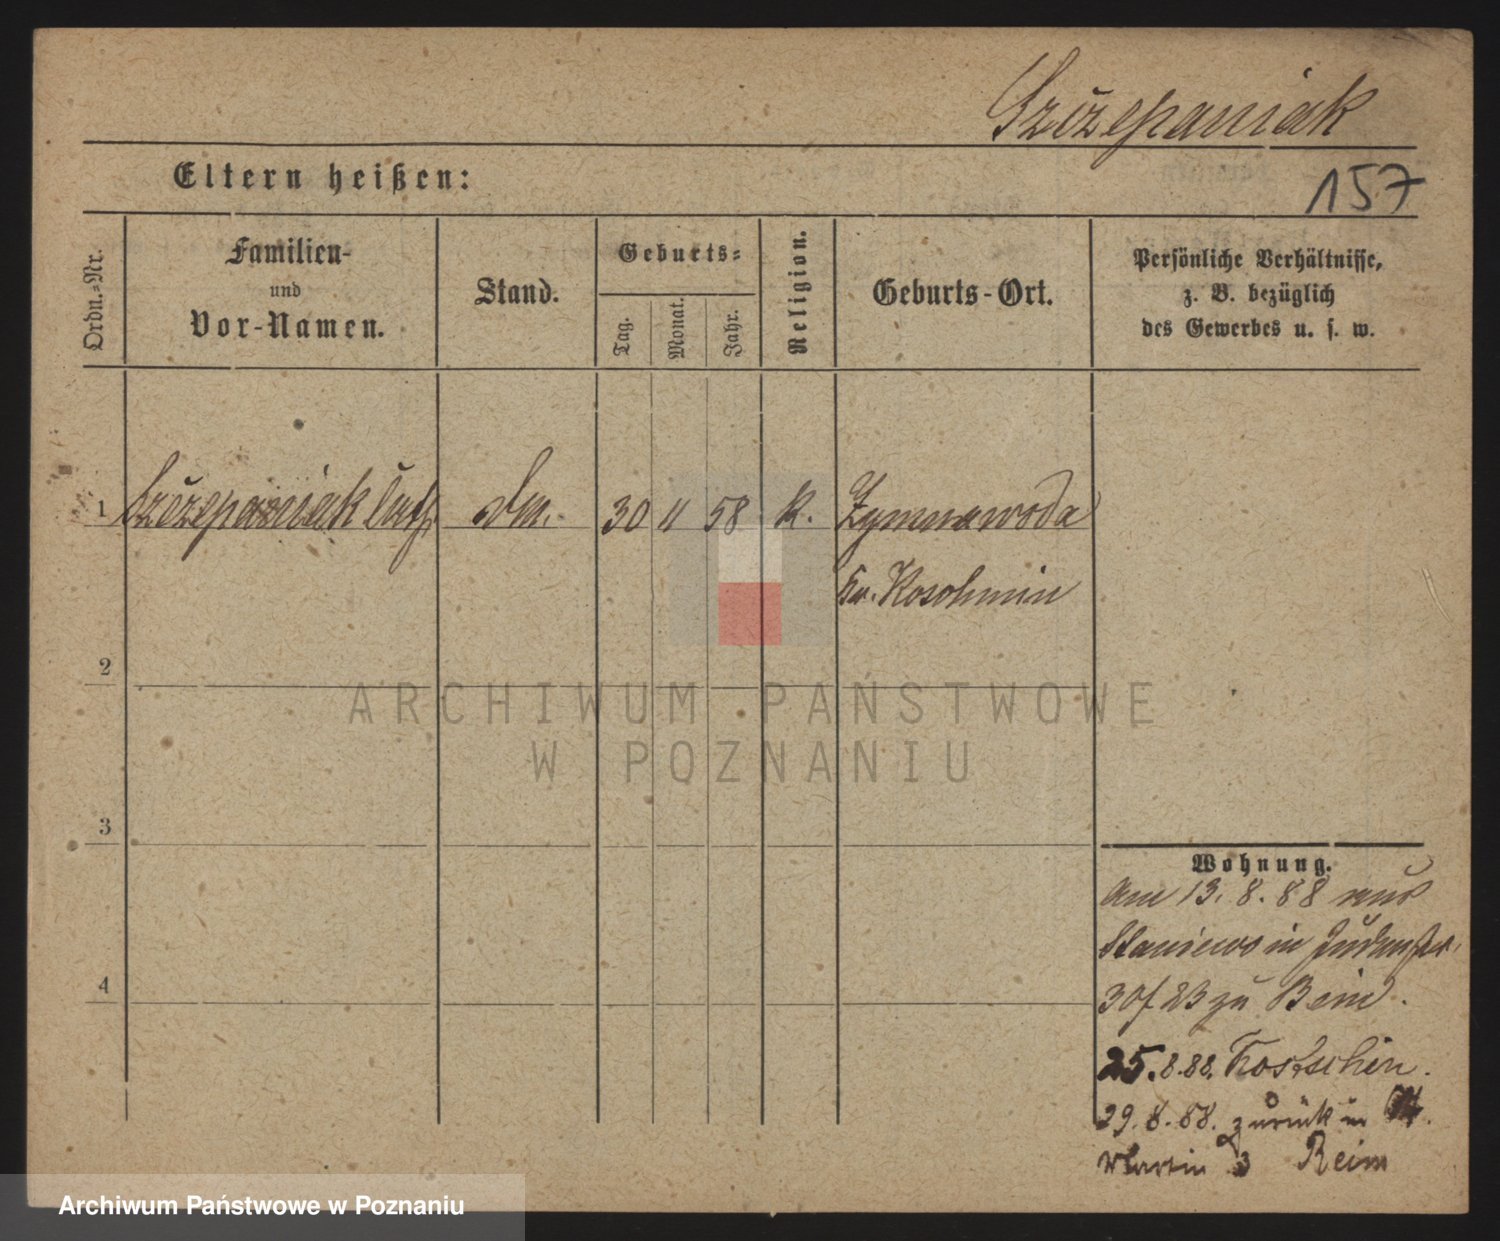 Szczepaniak
157
Eltern heißen:
Ordn.-Nr.
Familien-
und
Vor-Namen.
Stand.
Geburts-
Tag.
Monat.
Jahr.
Religion.
Geburts-Ort.
Persönliche Verhältnisse,
z. B. bezüglich
des Gewerbes u. s. w.
1 Szczepaniak Cath. 30 11 58 K. Zymnawoda
Kr. Koschmin
2
3
4
ARCHIWUM PAŃSTWOWE
W POZNANIU
Wohnung.
Am 13. 8. 88 aus
Staniewo in Judenstr.
30/ 23 zu
25. 8. 88. Kostschin.
29. 8. 88. zurück in St.
Martin 3 Reim
Archiwum Państwowe w Poznaniu